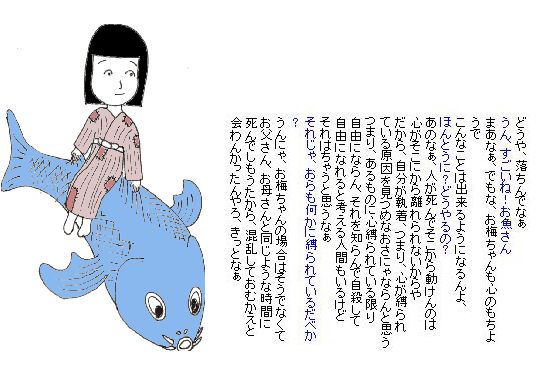 どうや、落ちんでなぁ
うん、すごいね！お魚さん
まあなぁ、でもな、お梅ちゃんも心のもちよ
うで
こんなことは出来るようになるんよ、
ほんとうに？どうやるの？
あのなぁ、人が死んでそこから動けんのは
心がそこにから離れられないからや
だから、自分が執着、つまり、心が縛られ
ている原因を見つめなおさにゃならんと思う
つまり、あるものに心縛られている限り
自由にならん、それを知らんで自殺して
自由になれると考える人間もいるけど
それはちゃうと思うなぁ
それじゃ、おらも何かに縛られているだべか
？
うんにゃ、お梅ちゃんの場合はそうでなくて
お父さん、お母さんと同じような時間に
死んでしもうたから、混乱しておむかえと
会わんかったんやろ、きっとなぁ